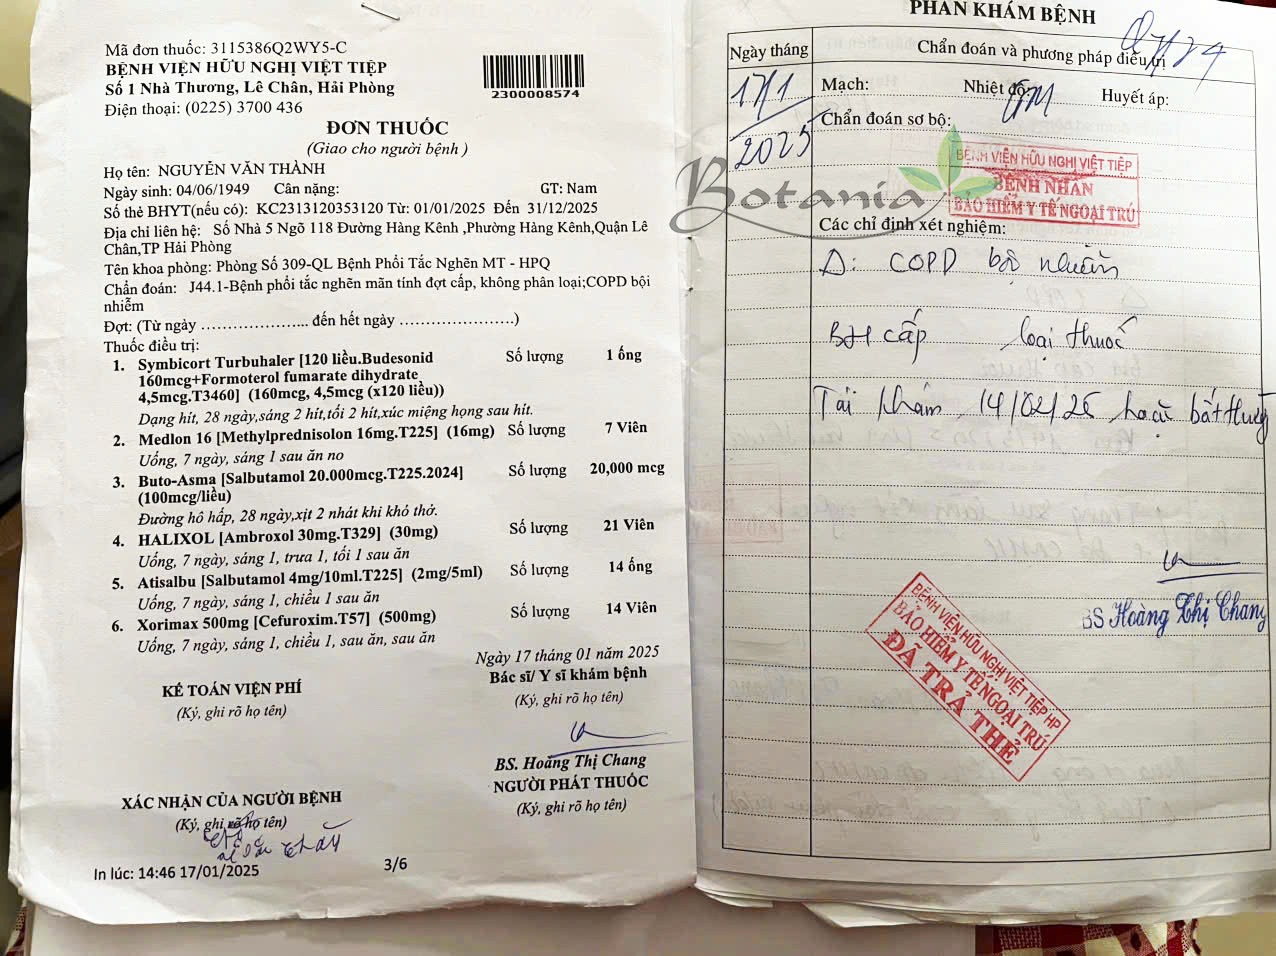 Mã đơn thuốc: 3115386Q2WY5-C
BỆNH VIỆN HỮU NGHỊ VIỆT TIỆP
Số 1 Nhà Thương, Lê Chân, Hải Phòng
Điện thoại: (0225) 3700 436
2300008574
ĐƠN THUỐC
(Giao cho người bệnh )
Họ tên: NGUYỄN VĂN THÀNH
Ngày sinh: 04/06/1949 Cân nặng: GT: Nam
Số thẻ BHYT(nếu có): KC2313120353120 Từ: 01/01/2025 Đến 31/12/2025
Địa chỉ liên hệ: Số Nhà 5 Ngõ 118 Đường Hàng Kênh ,Phường Hàng Kênh,Quận Lê
Chân,TP Hải Phòng
Tên khoa phòng: Phòng Số 309-QL Bệnh Phổi Tắc Nghẽn MT - HPQ
Chẩn đoán: J44.1-Bệnh phổi tắc nghẽn mãn tính đợt cấp, không phân loại;COPD bội
nhiễm
Đợt: (Từ ngày ………………... đến hết ngày …………………)
Thuốc điều trị:
1. Symbicort Turbuhaler [120 liều.Budesonid Số lượng 1 ống
160mcg+Formoterol fumarate dihydrate
4,5mcg.T3460] (160mcg, 4,5mcg (x120 liều))
Dạng hít, 28 ngày,sáng 2 hít,tối 2 hít,xúc miệng họng sau hít.
2. Medlon 16 [Methylprednisolon 16mg.T225] (16mg) Số lượng 7 Viên
Uống, 7 ngày, sáng 1 sau ăn no
3. Buto-Asma [Salbutamol 20.000mcg.T225.2024] Số lượng 20,000 mcg
(100mcg/liều)
Đường hô hấp, 28 ngày,xịt 2 nhát khi khó thở.
4. HALIXOL [Ambroxol 30mg.T329] (30mg) Số lượng 21 Viên
Uống, 7 ngày, sáng 1, trưa 1, tối 1 sau ăn
5. Atisalbu [Salbutamol 4mg/10ml.T225] (2mg/5ml) Số lượng 14 ống
Uống, 7 ngày, sáng 1, chiều 1 sau ăn
6. Xorimax 500mg [Cefuroxim.T57] (500mg) Số lượng 14 Viên
Uống, 7 ngày, sáng 1, chiều 1, sau ăn, sau ăn
Ngày 17 tháng 01 năm 2025
KẾ TOÁN VIỆN PHÍ Bác sĩ/ Y sĩ khám bệnh
(Ký, ghi rõ họ tên) (Ký, ghi rõ họ tên)
BS. Hoàng Thị Chang
NGƯỜI PHÁT THUỐC
XÁC NHẬN CỦA NGƯỜI BỆNH (Ký, ghi rõ họ tên)
(Ký, ghi rõ họ tên)
In lúc: 14:46 17/01/2025 3/6
PHẦN KHÁM BỆNH
Ngày tháng Chẩn đoán và phương pháp điều trị
17/1
2025
Mạch: Nhiệt độ: Huyết áp:
Chẩn đoán sơ bộ:
Botania
BỆNH VIỆN HỮU NGHỊ VIỆT TIỆP
BỆNH NHÂN
BẢO HIỂM Y TẾ NGOẠI TRÚ
Các chỉ định xét nghiệm:
Δ: COPD bội nhiễm
BH cấp loại thuốc
Tái khám 14/02/25 hoặc bất thường
BS Hoàng Thị Chang
BỆNH VIỆN HỮU NGHỊ VIỆT TIỆP HP
BẢO HIỂM Y TẾ NGOẠI TRÚ
ĐÃ TRẢ THẺ